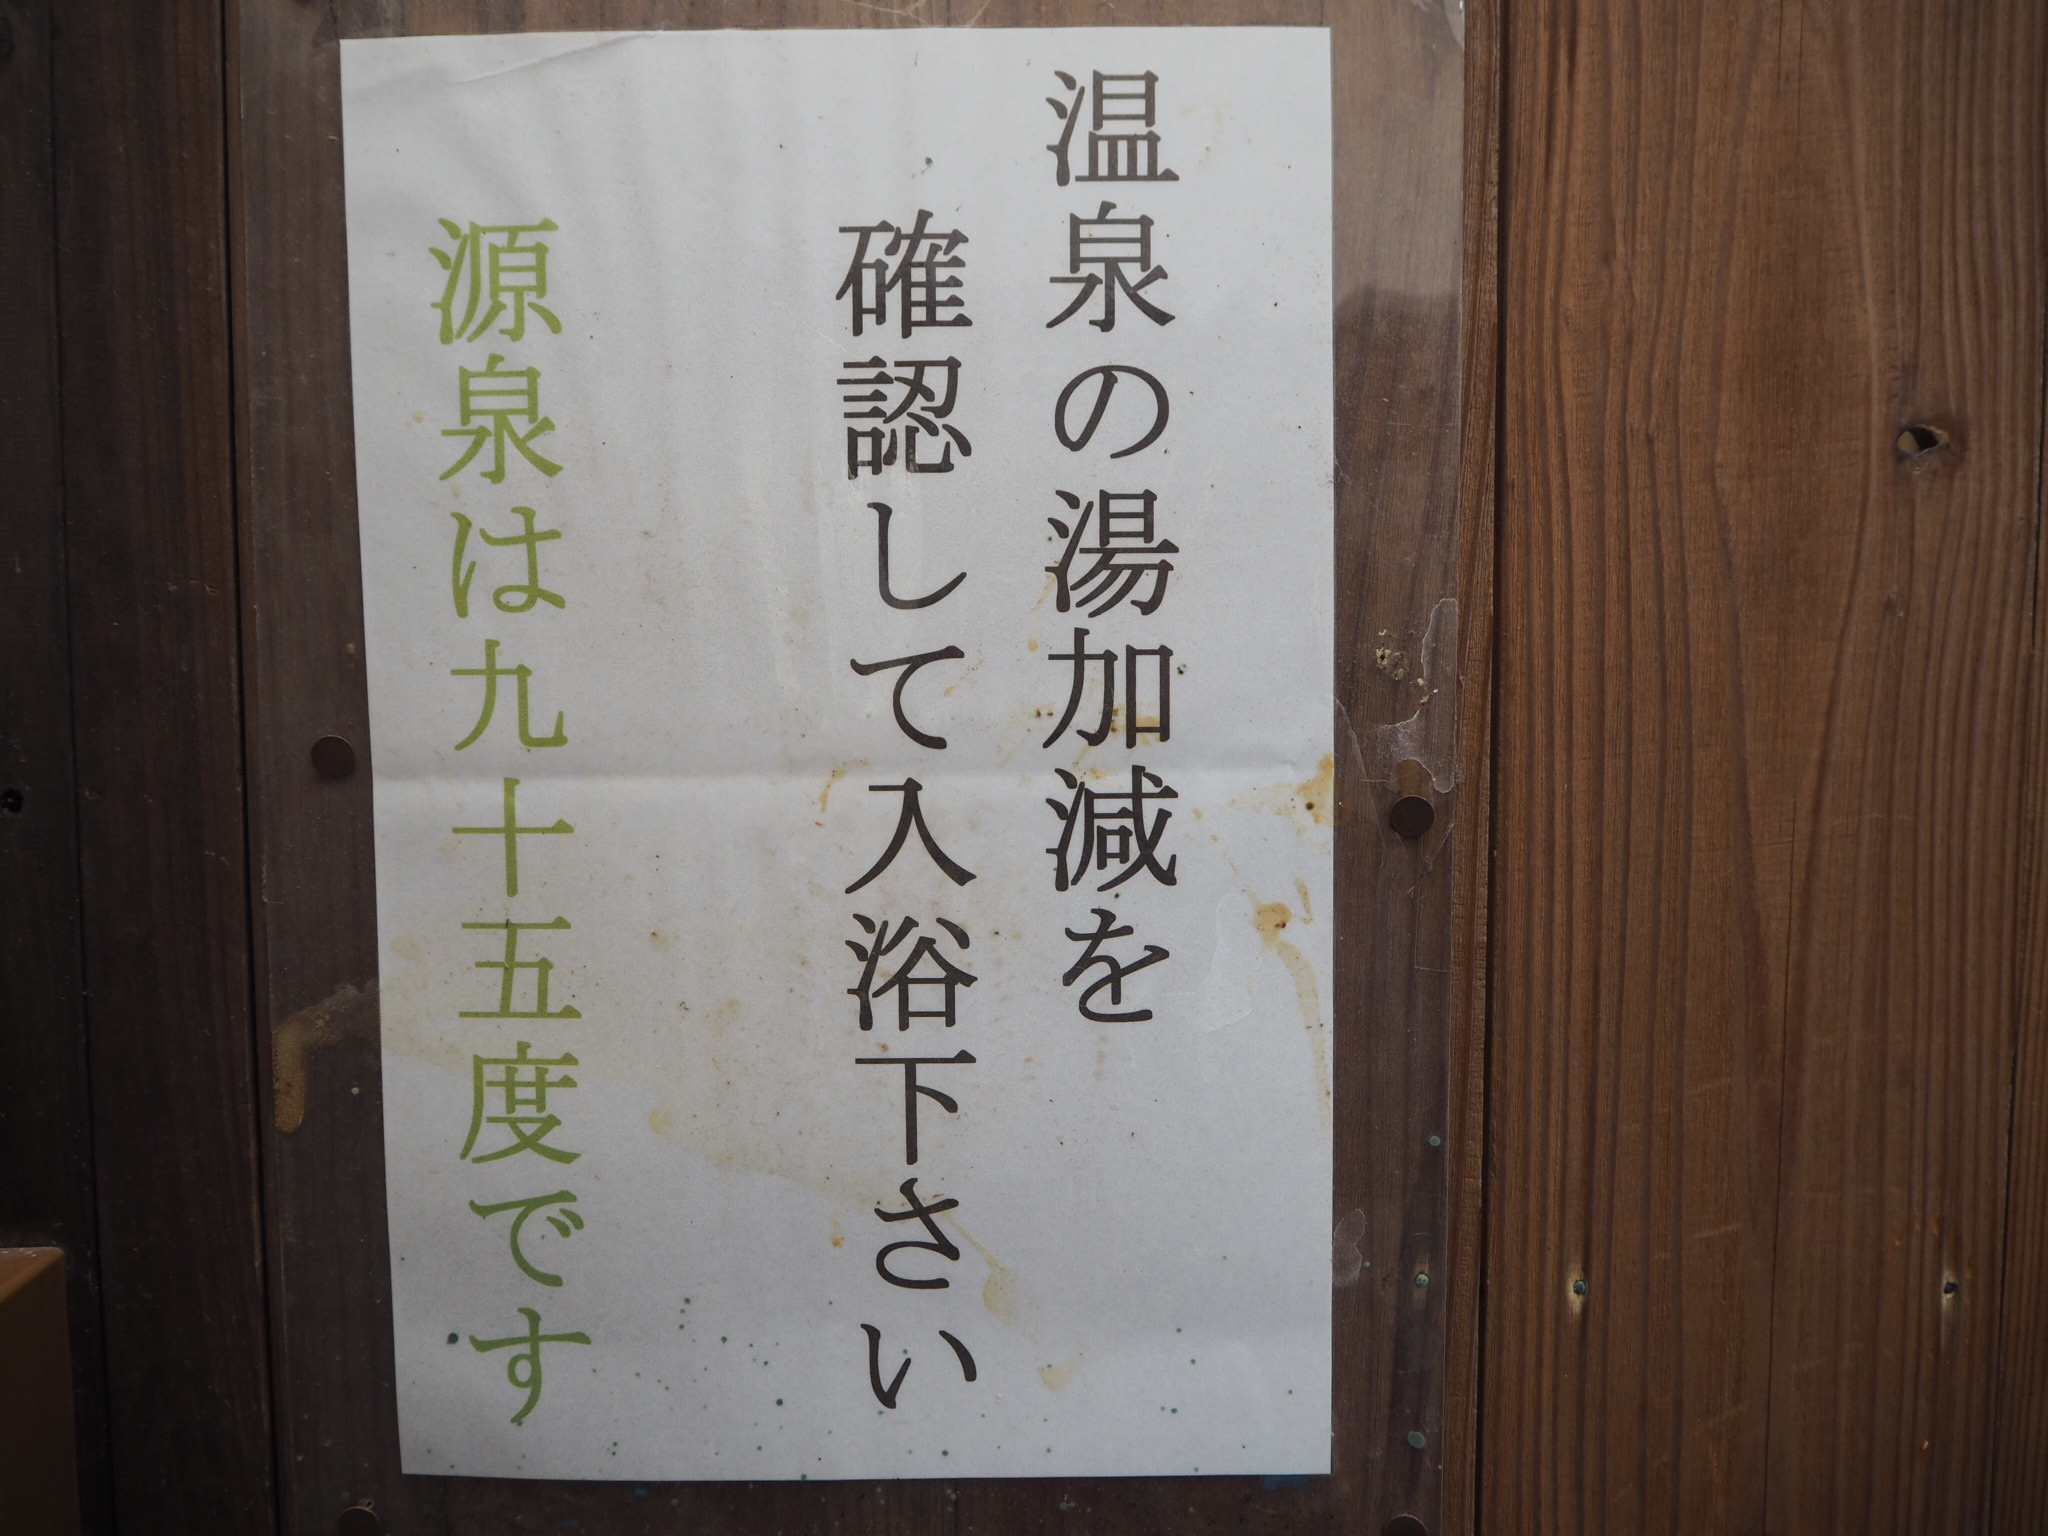 温泉の湯加減を
確認して入浴下さい
源泉は九十五度です